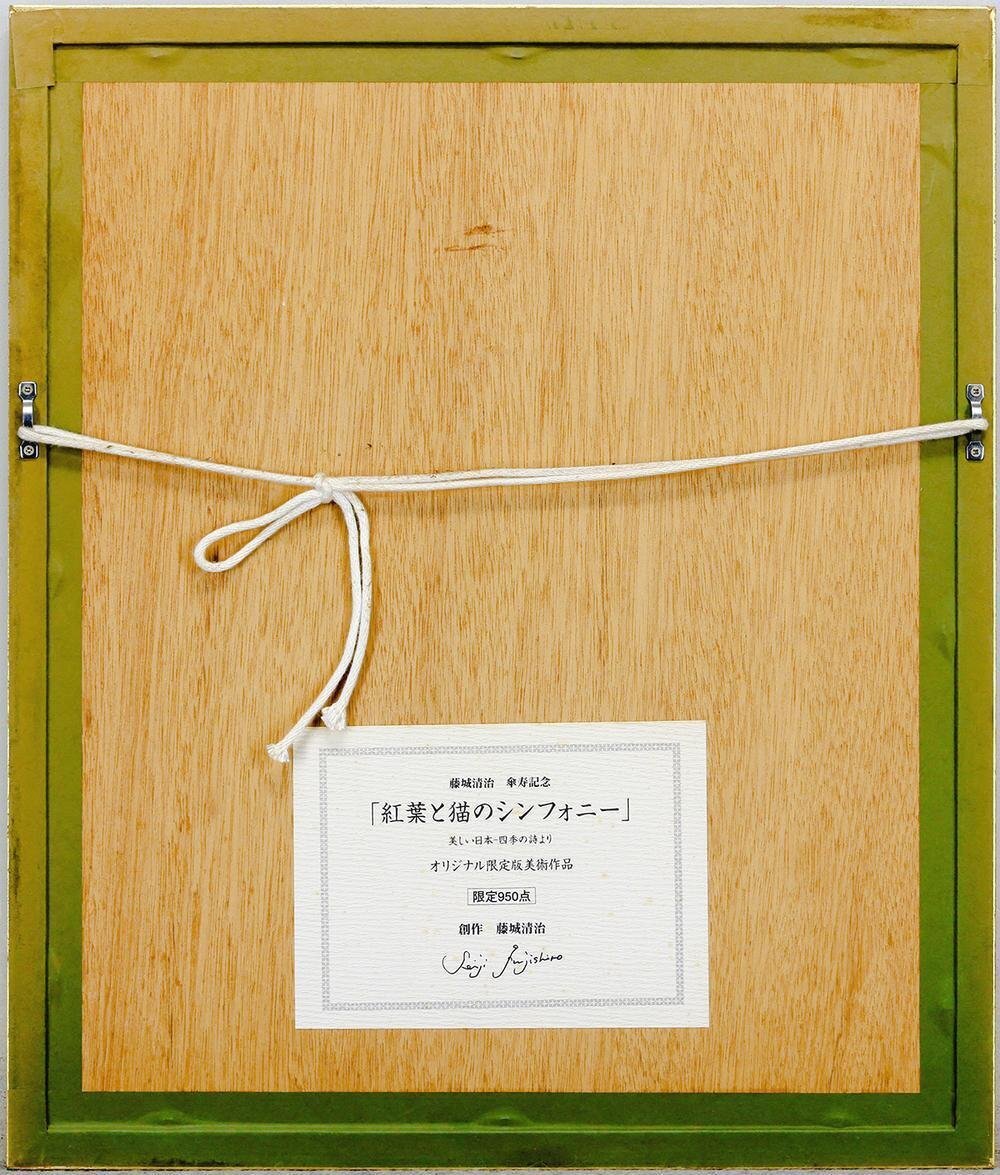 藤城清治 傘寿記念
「紅葉と猫のシンフォニー」
美しい日本-四季の詩より
オリジナル限定版美術作品
限定950点
創作 藤城清治
Seiji Fujishiro